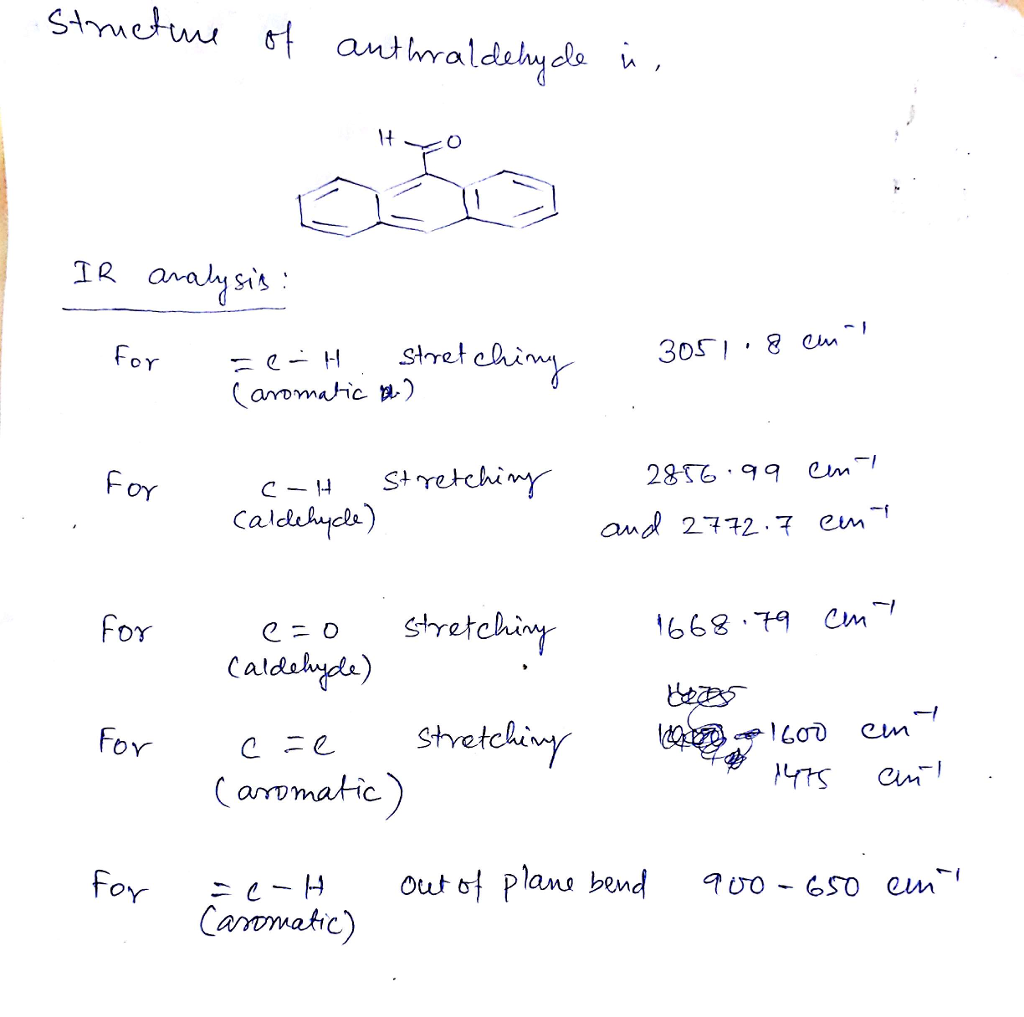 Structure of anthraldehyde is,
H O
IR analysis:
For =C-H stretching 3051.8 cm⁻¹
(aromatic)
For C-H stretching 2856.99 cm⁻¹
(aldehyde) and 2772.7 cm⁻¹
For C=O stretching 1668.79 cm⁻¹
(aldehyde)
For C=C stretching 1600 cm⁻¹
(aromatic) 1475 cm⁻¹
For =C-H out of plane bend 900-650 cm⁻¹
(aromatic)